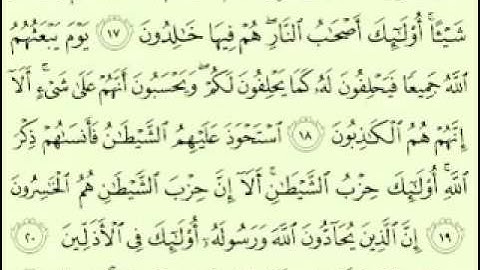 شَيْـًٔا ۖ أُو۟لَـٰٓئِكَ أَصْحَـٰبُ ٱلنَّارِ ۖ هُمْ فِيهَا خَـٰلِدُونَ ١٧ يَوْمَ يَبْعَثُهُمُ
ٱللَّهُ جَمِيعًا فَيَحْلِفُونَ لَهُۥ كَمَا يَحْلِفُونَ لَكُمْ ۖ وَيَحْسَبُونَ أَنَّهُمْ عَلَىٰ شَىْءٍ ۚ أَلَآ
إِنَّهُمْ هُمُ ٱلْكَـٰذِبُونَ ١٨ ٱسْتَحْوَذَ عَلَيْهِمُ ٱلشَّيْطَـٰنُ فَأَنسَىٰهُمْ ذِكْرَ
ٱللَّهِ ۚ أُو۟لَـٰٓئِكَ حِزْبُ ٱلشَّيْطَـٰنِ ۚ أَلَآ إِنَّ حِزْبَ ٱلشَّيْطَـٰنِ هُمُ ٱلْخَـٰسِرُونَ
١٩ إِنَّ ٱلَّذِينَ يُحَآدُّونَ ٱللَّهَ وَرَسُولَهُۥٓ أُو۟لَـٰٓئِكَ فِى ٱلْأَذَلِّينَ ٢٠